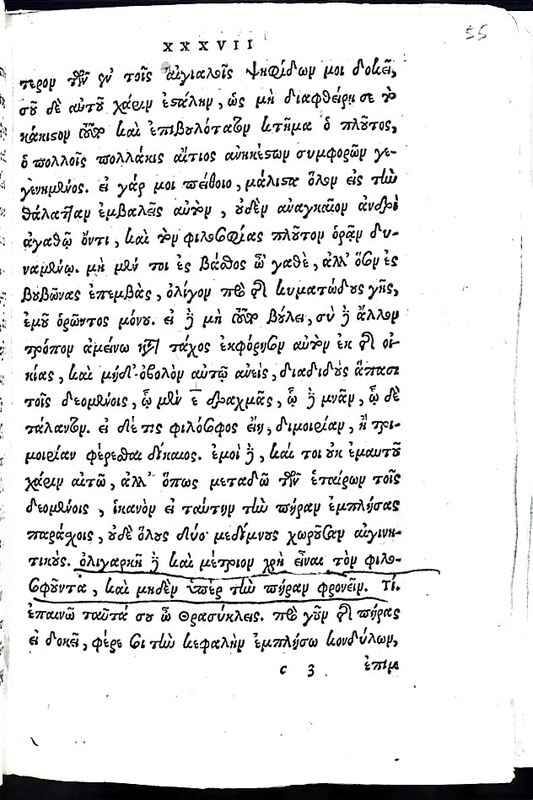 XXXVII
55
τερον τῶν ἐν τοῖς αἰγιαλοῖς ψηφίδων μοι δοκεῖ,
σοῦ δὲ αὐτοῦ χάριν ἐστάλην, ὡς μὴ διαφθείρῃ σε τὸ
κάκιστον τοῦτο καὶ ἐπιβουλότατον κτῆμα ὁ πλοῦτος,
ὁ πολλοῖς πολλάκις αἴτιος ἀνηκέστων συμφορῶν γε-
γενημένος. εἰ γάρ μοι πείθοιο, μάλιστα ὅλον εἰς τὴν
θάλατταν ἐμβαλεῖς αὐτὸν, οὐδὲν ἀναγκαῖον ἀνδρὶ
ἀγαθῷ ὄντι, καὶ τὸν φιλοσοφίας πλοῦτον ὁρᾷν δυ-
ναμένῳ. μὴ μέν τοι ἐς βάθος ὦ γαθὲ, ἀλλ' ὅσον ἐς
βουβῶνας ἐπεμβὰς, ὀλίγον πρὸ τῆς κυματώδους γῆς,
ἐμοῦ ὁρῶντος μόνου. εἰ δὲ μὴ τοῦτο βούλει, σὺ δὲ ἄλλον
τρόπον ἀμείνω κατὰ τάχος ἐκφόρησον αὐτὸν ἐκ τῆς οἰ-
κίας, καὶ μηδ' ὀβολὸν αὐτῷ ἀνεὶς, διαδιδοὺς ἅπασι
τοῖς δεομένοις, ᾧ μὲν ε δραχμὰς, ᾧ δὲ μνᾶν, ᾧ δὲ
τάλαντον. εἰ δέ τις φιλόσοφος εἴη, διμοιρίαν, ἢ τρι-
μοιρίαν φέρεσθαι δίκαιος. ἐμοὶ δὲ, καί τοι οὐκ ἐμαυτοῦ
χάριν αἰτῶ, ἀλλ' ὅπως μεταδῶ τῶν ἑταίρων τοῖς
δεομένοις, ἱκανὸν εἰ ταύτην τὴν πήραν ἐμπλήσας
παράσχοις, οὐδὲ ὅλους δύο μεδίμνους χωροῦσαν αἰγινη-
τικούς. ὀλιγαρκῆ δὲ καὶ μέτριον χρὴ εἶναι τὸν φιλο-
σοφοῦντα, καὶ μηδὲν ὑπὲρ τὴν πήραν φρονεῖν. Τί.
ἐπαινῶ ταῦτά σου ὦ Θρασύκλεις. πρὸ γοῦν τῆς πήρας
εἰ δοκεῖ, φέρε σοι τὴν κεφαλὴν ἐμπλήσω κονδύλων,
c 3 ἐπιμε